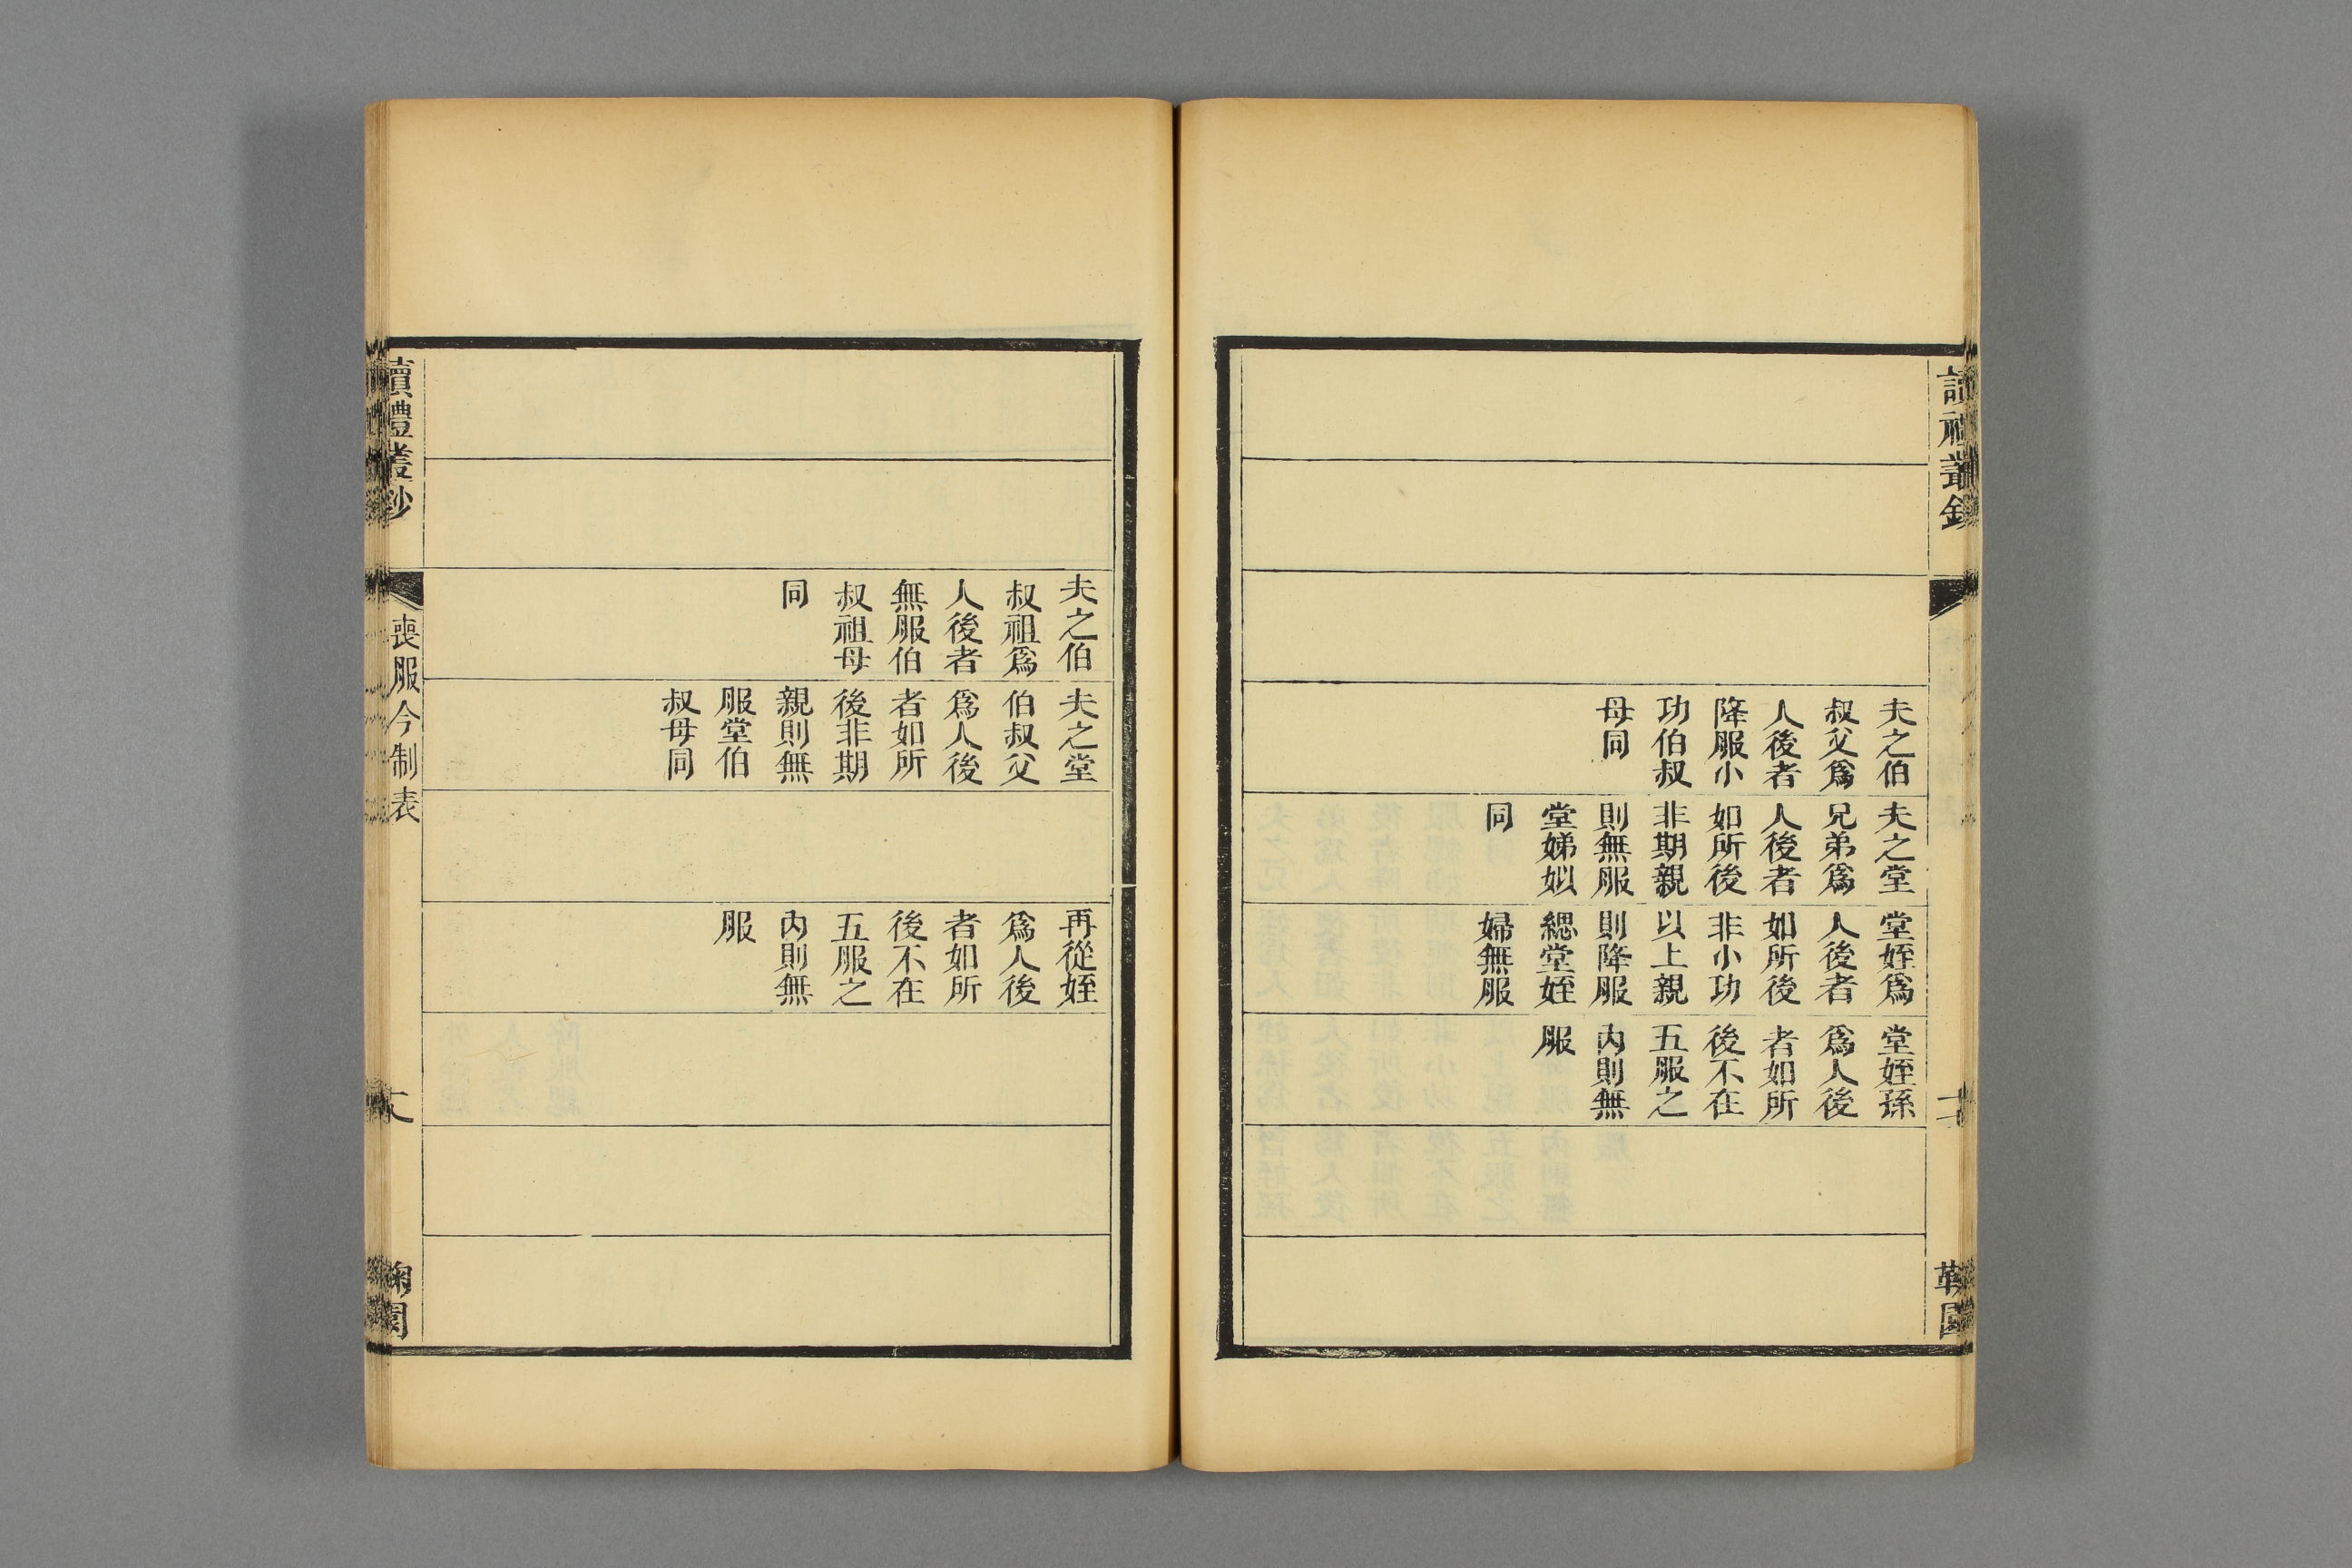 夫之伯
叔父爲
人後者
降服小
功伯叔
母同
夫之堂
兄弟爲
人後者
如所後
非期親
則無服
堂娣姒
同
堂姪爲
人後者
如所後
非小功
以上親
則降服
緦堂姪
婦無服
堂姪孫
爲人後
者如所
後不在
五服之
內則無
服
夫之伯
叔祖爲
人後者
無服伯
叔祖母
同
夫之堂
伯叔父
爲人後
者如所
後非期
親則無
服堂伯
叔母同
再從姪
爲人後
者如所
後不在
五服之
內則無
服
讀禮叢鈔
喪服今制表